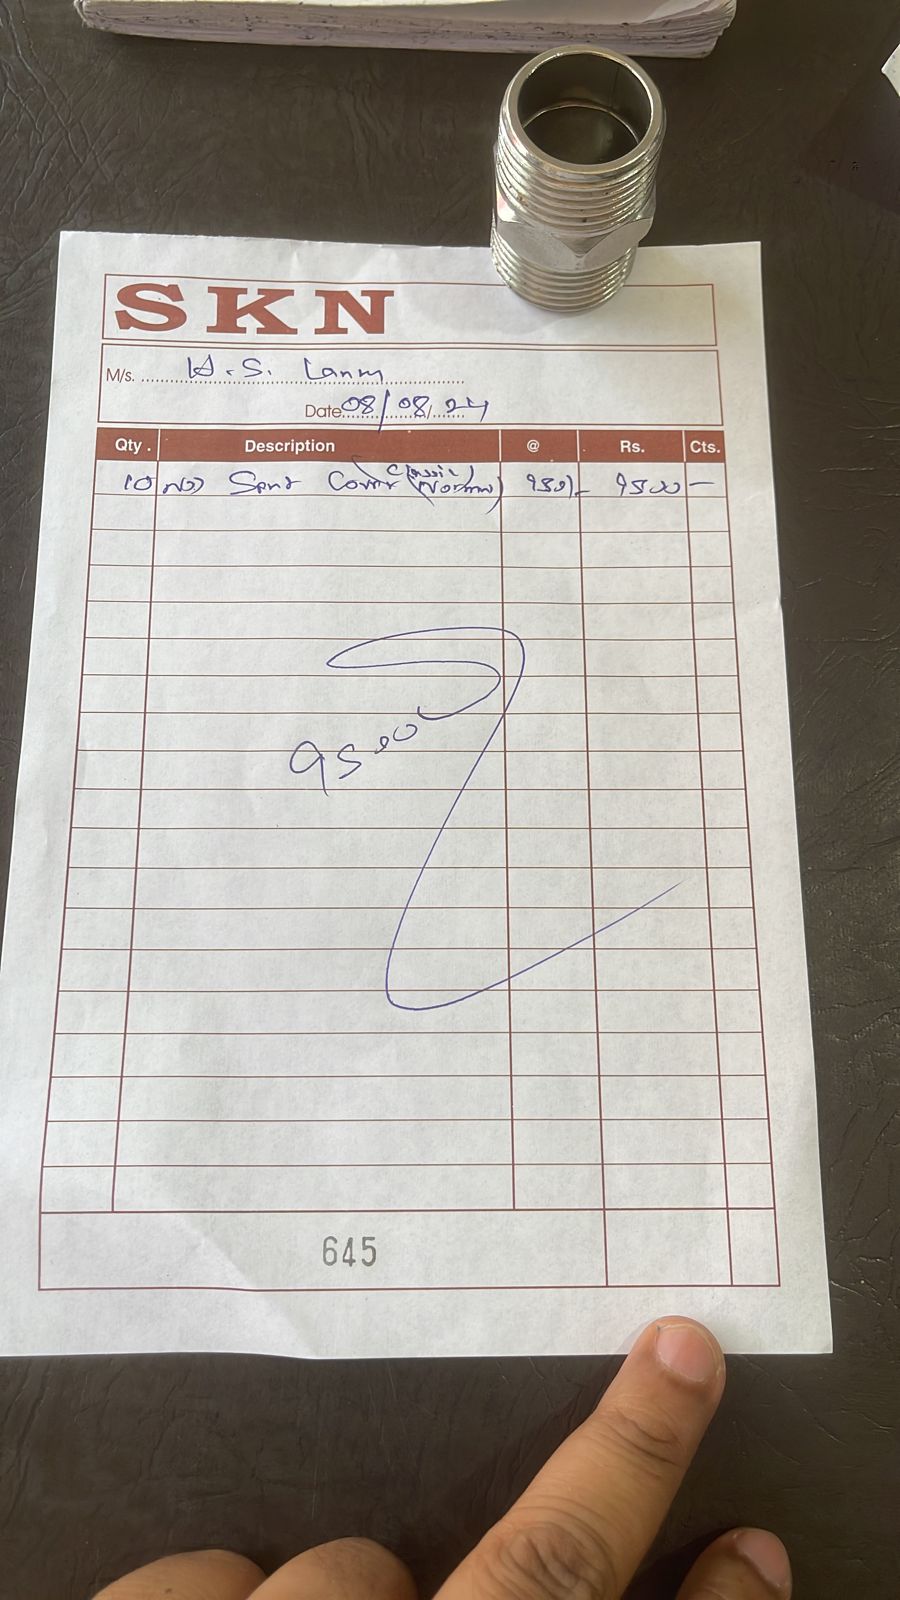 SKN
M/s. H.S. Lanm
Date 08/08/24
Qty. Description @ Rs. Cts.
10 Nos Cover (Classic Normal) 950/- 9500 -
9500
645